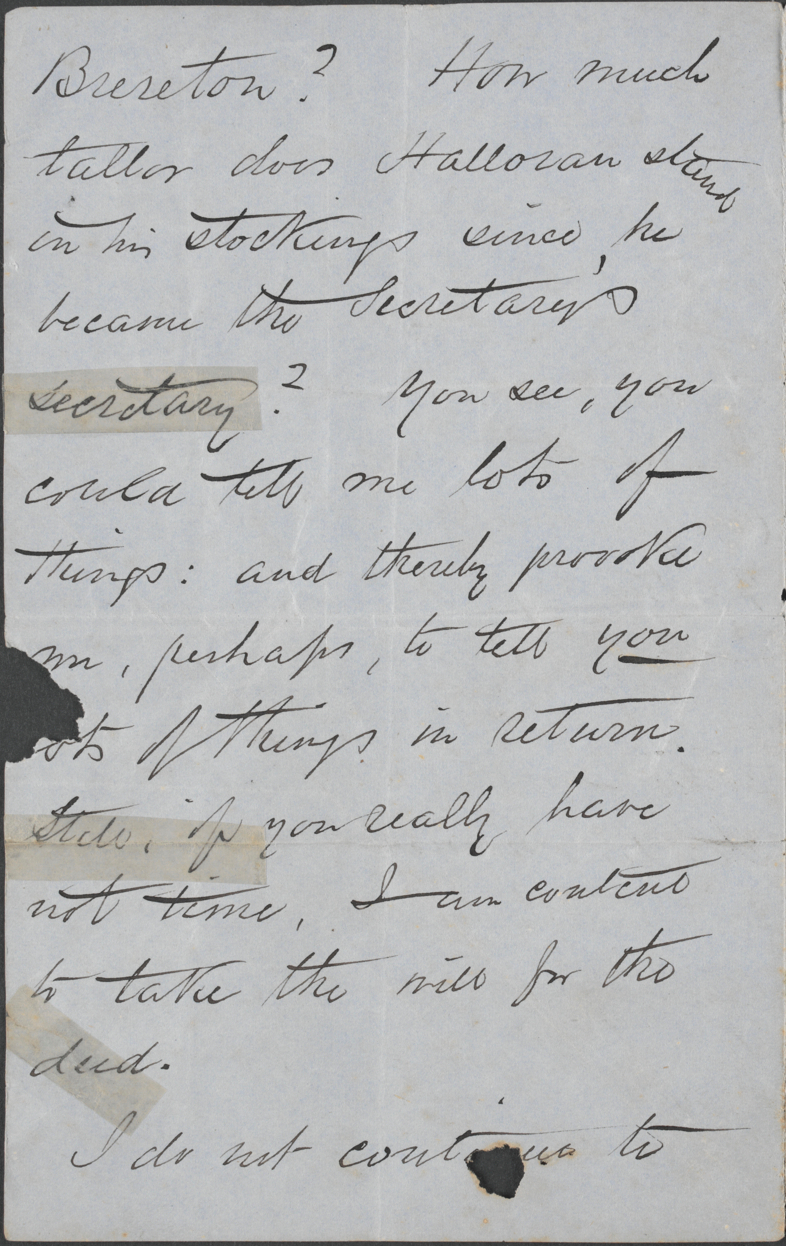 Brereton? How much
taller does Halloran stand
in his stockings since, he
became the Secretary's
secretary? You see, you
could tell me lots of
things: and thereby provoke
me, perhaps, to tell you
ots of things in return.
Still, if you really have
not time, I am content
to take the will for the
deed.
I do not continue to